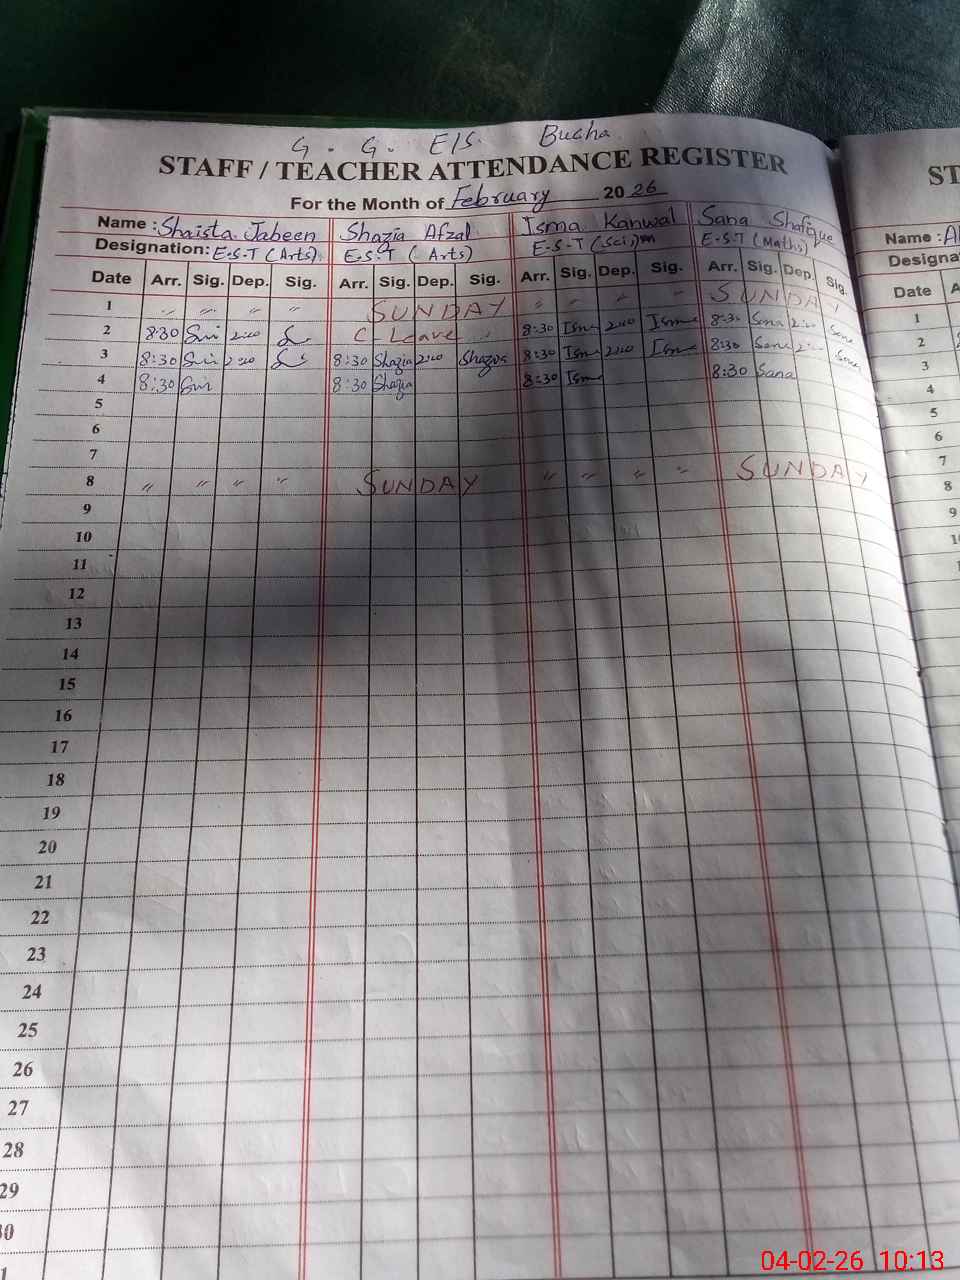 G. G. E/S. Bucha
STAFF / TEACHER ATTENDANCE REGISTER
For the Month of February 2026
Name : Shaista Jabeen Shazia Afzal Isma Kanwal Sana Shafique
Designation: E.S.T (Arts) E.S.T (Arts) E.S.T (Sci)m E.S.T (Maths)
Date Arr. Sig. Dep. Sig. Arr. Sig. Dep. Sig. Arr. Sig. Dep. Sig. Arr. Sig. Dep. Sig.
1 " " " " SUNDAY " " " " SUNDAY
2 8:30 2:10 C-Leave 8:30 Isma 2:10 Isma 8:30 Sana 2:10 Sana
3 8:30 2:10 8:30 Shazia 2:10 Shazia 8:30 Isma 2:10 Isma 8:30 Sana 2:10 Sana
4 8:30 8:30 Shazia 8:30 Isma 8:30 Sana
5
6
7
8 " " " " SUNDAY " " " " SUNDAY
9
10
11
12
13
14
15
16
17
18
19
20
21
22
23
24
25
26
27
28
29
30
1
ST
Name :
Designa
Date A
1
2
3
4
5
6
7
8
9
10
04-02-26 10:13